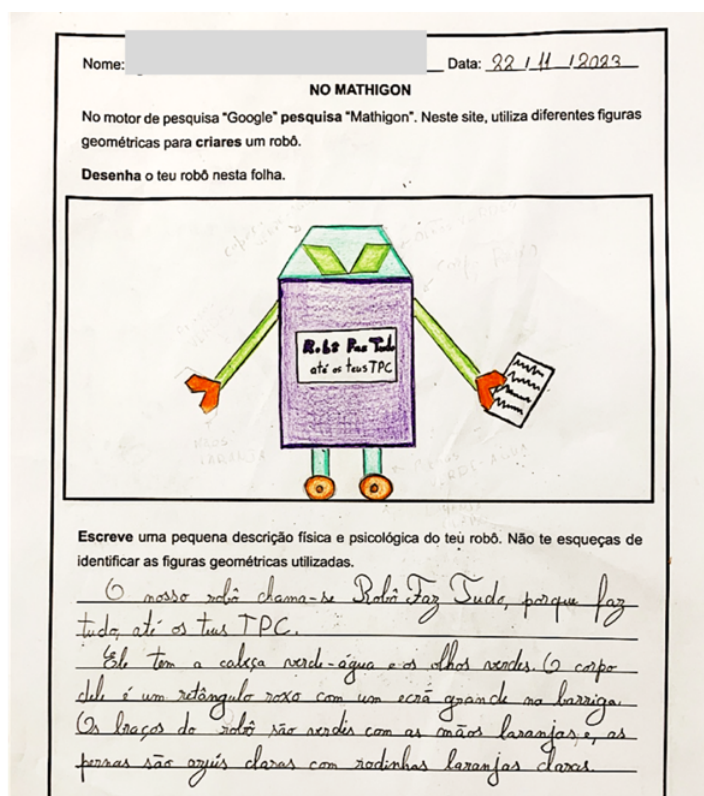 Nome: Data: 22 / 11 / 2023
NO MATHIGON
No motor de pesquisa "Google" pesquisa "Mathigon". Neste site, utiliza diferentes figuras
geométricas para criares um robô.
Desenha o teu robô nesta folha.
Robô Faz Tudo
até os teus TPC
Escreve uma pequena descrição física e psicológica do teu robô. Não te esqueças de
identificar as figuras geométricas utilizadas.
O nosso robô chama-se Robô Faz Tudo, porque faz
tudo, até os teus TPC.
Ele tem a cabeça verde-água e os olhos verdes. O corpo
dele é um retângulo roxo com um ecrã grande na barriga.
Os braços do robô são verdes com as mãos laranjas, e, as
pernas são azuis claras com rodinhas laranjas claras.